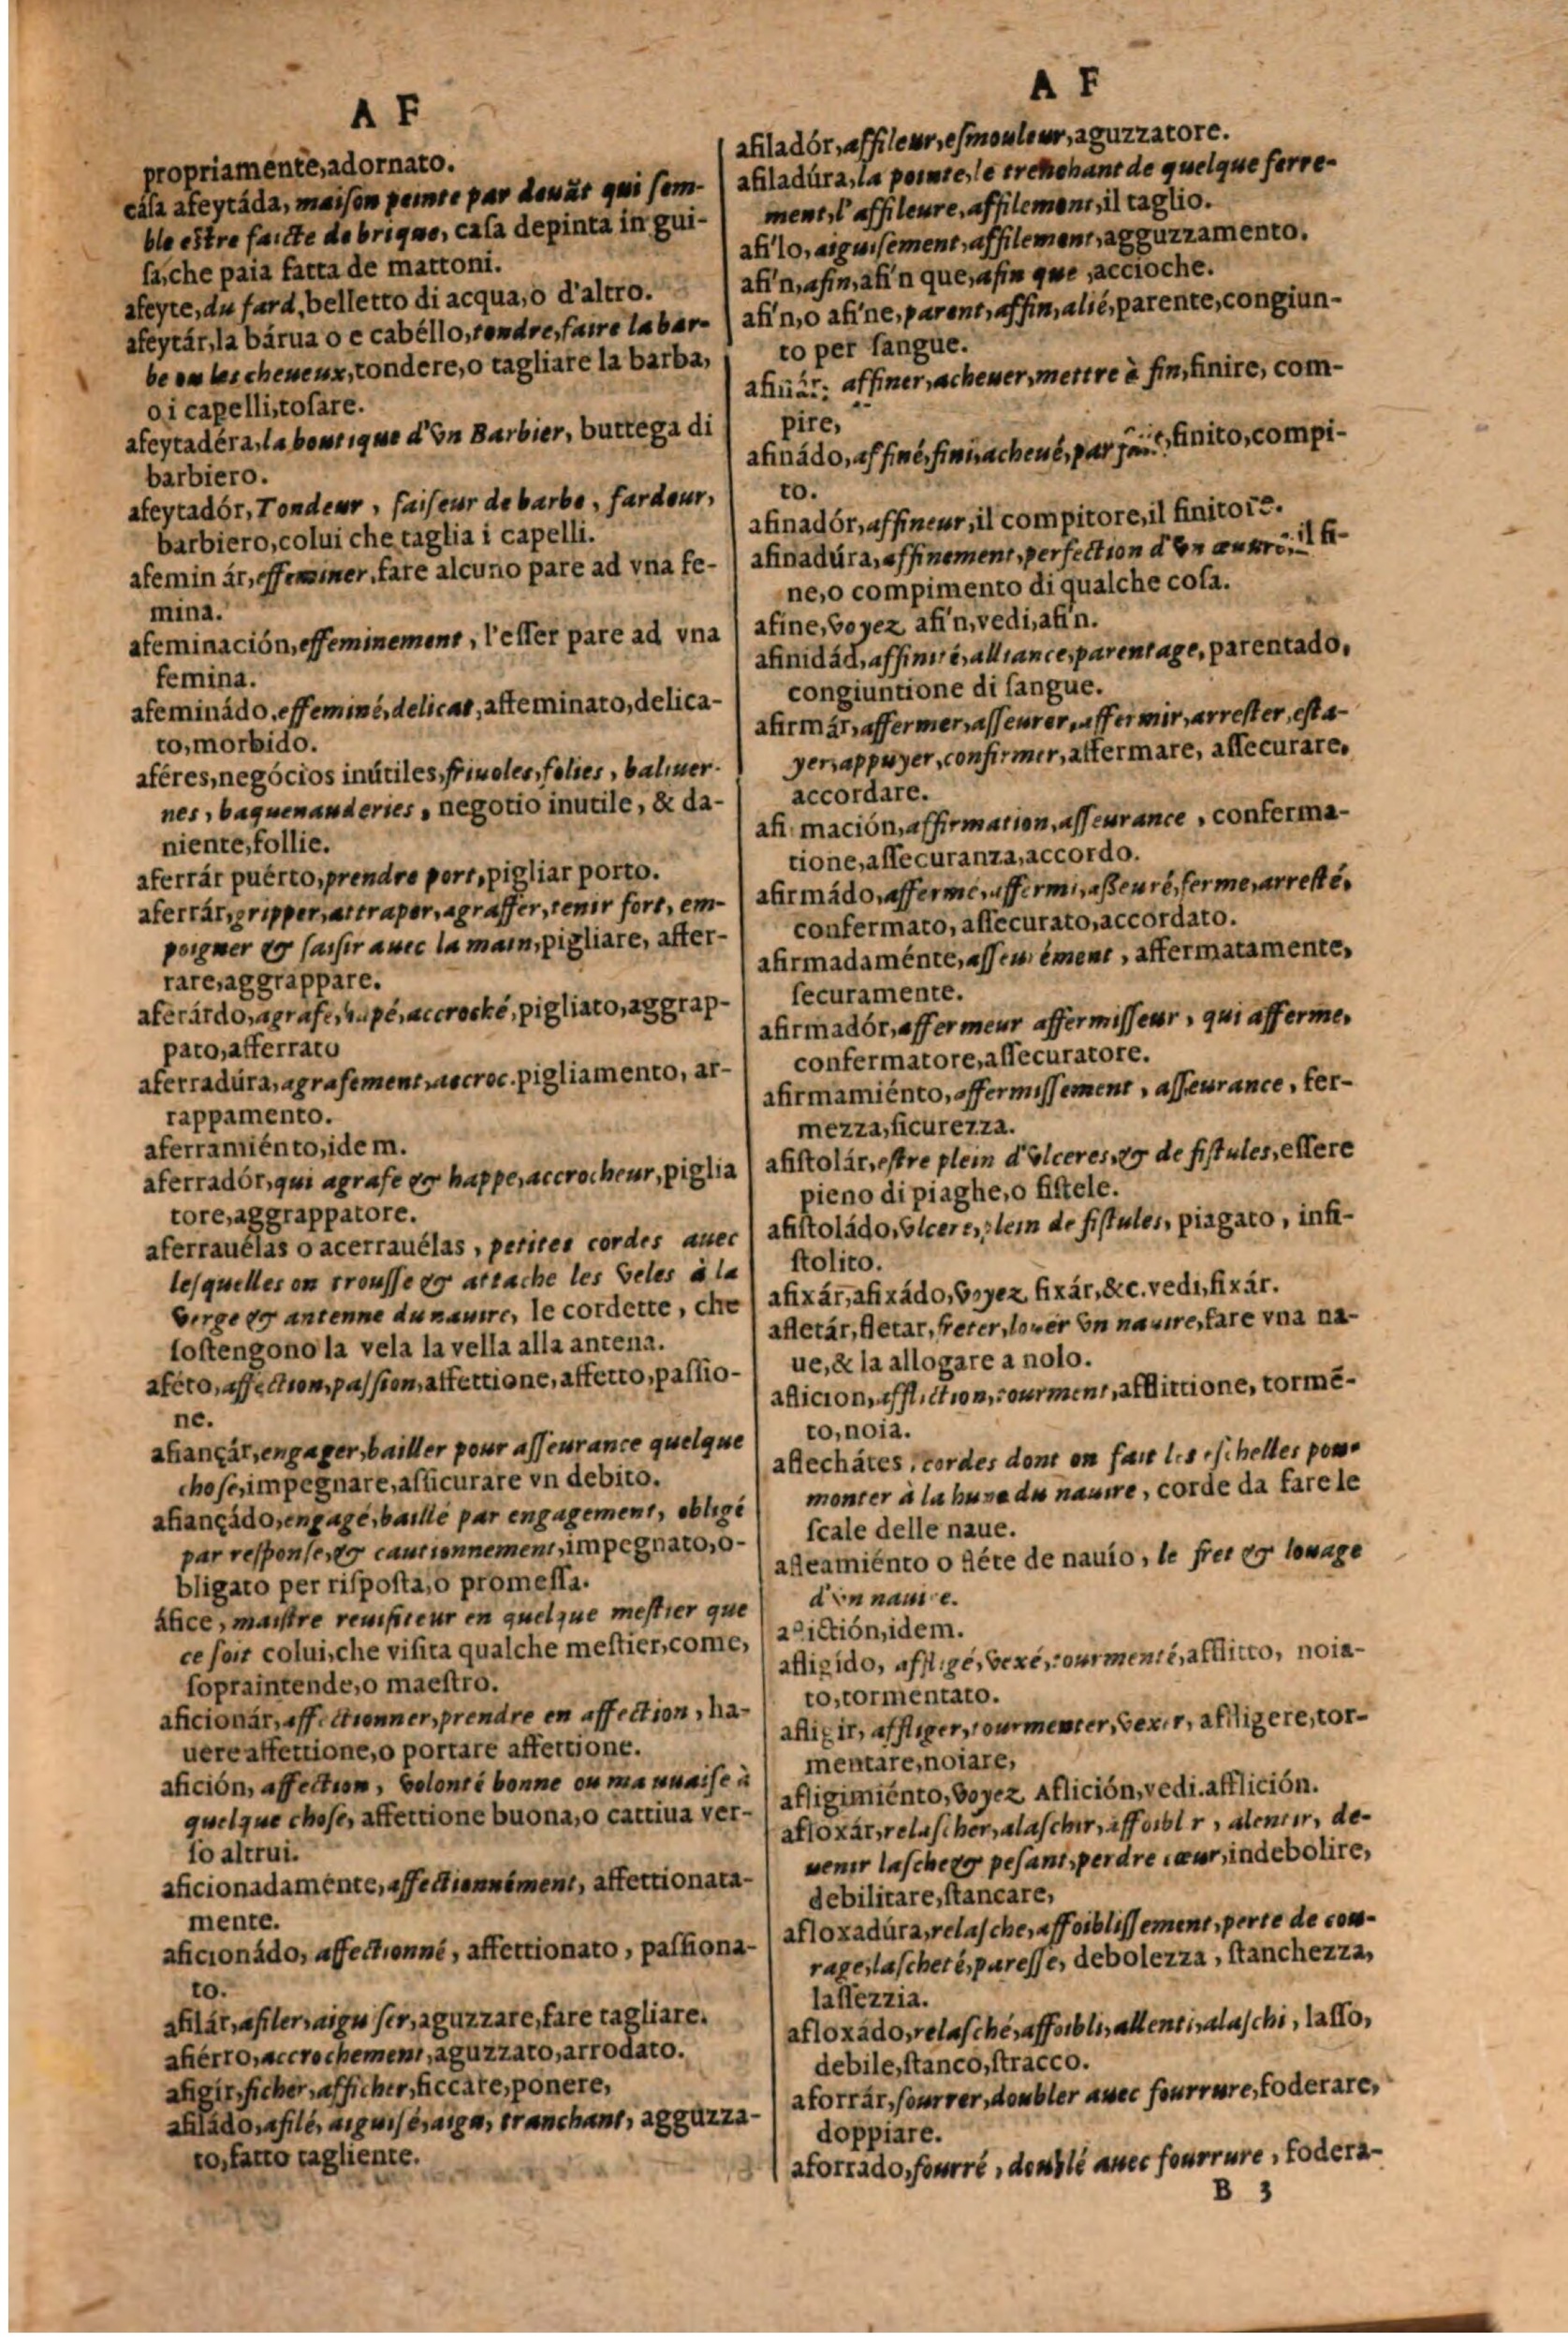 A F
propriamente,adornato.
cása afeytáda, maiſon peinte par deuãt qui ſem-
ble eſtre faicte de brique, caſa depinta in gui-
ſa,che paia fatta de mattoni.
afeyte,du fard,belletto di acqua,o d'altro.
afeytár,la bárua o e cabéllo,tondre,faire la bar-
be ou les cheueux,tondere,o tagliare la barba,
o i capelli,toſare.
afeytadéra,la boutique d'vn Barbier, buttega di
barbiero.
afeytadór,Tondeur, faiſeur de barbe, fardeur,
barbiero,colui che taglia i capelli.
afemin ár,effeminer,fare alcuno pare ad vna fe-
mina.
afeminación,effeminement, l'eſſer pare ad vna
femina.
afeminádo,effeminé,delicat,affeminato,delica-
to,morbido.
aféres,negócios inútiles,friuoles,folies, baliuer-
nes, baquenauderies, negotio inutile, & da-
niente,follie.
aferrár puérto,prendre port,pigliar porto.
aferrár,gripper,attraper,agraffer,tenir fort, em-
poigner & ſaiſir auec la main,pigliare, affer-
rare,aggrappare.
aferárdo,agrafé,hapé,accroché,pigliato,aggrap-
pato,afferrato
aferradúra,agrafement,accroc.pigliamento, ar-
rappamento.
aferramiénto,idem.
aferradór,qui agrafe & happe,accrocheur,piglia
tore,aggrappatore.
aferrauélas o acerrauélas, petites cordes auec
leſquelles on trouſſe & attache les veles à la
verge & antenne du nauire, le cordette, che
ſoſtengono la vela la vella alla antena.
aféto,affection,paſſion,affettione,affetto,paſſio-
ne.
afiançár,engager,bailler pour aſſeurance quelque
choſe,impegnare,aſſicurare vn debito.
afiançádo,engagé,baillé par engagement, obligé
par reſponſe,& cautionnement,impegnato,o-
bligato per riſpoſta,o promeſſa.
áfice, maiſtre reuiſiteur en quelque meſtier que
ce ſoit colui,che viſita qualche meſtier,come,
ſopraintende,o maeſtro.
aficionár,affectionner,prendre en affection, ha-
uere affettione,o portare affettione.
afición, affection, volonté bonne ou mauuaiſe à
quelque choſe, affettione buona,o cattiua ver-
ſo altrui.
aficionadaménte,affectionnément, affettionata-
mente.
aficionádo, affectionné, affettionato, paſſiona-
to.
afilár,afiler,aiguſer,aguzzare,fare tagliare.
afiérro,accrochement,aguzzato,arrodato.
afigír,ficher,afficher,ficcare,ponere,
afiládo,afilé,aiguiſé,aigu, tranchant, agguzza-
to,fatto tagliente.
A F
afiladór,affileur,eſmouleur,aguzzatore.
afiladúra,la pointe,le trenchant de quelque ferre-
ment,l'affileure,affilement,il taglio.
afí'lo,aiguiſement,affilement,agguzzamento.
afí'n,afin,afí'n que,afin que,accioche.
afí'n,o afí'ne,parent,affin,alié,parente,congiun-
to per ſangue.
afinár, affiner,acheuer,mettre à fin,finire, com-
pire,
afinádo,affiné,fini,acheué,parfait,finito,compi-
to.
afinadór,affineur,il compitore,il finitore.
afinadúra,affinement,perfection d'vn œuure,il fi-
ne,o compimento di qualche coſa.
afíne,voyez afí'n,vedi,afí'n.
afinidád,affinité,alliance,parentage,parentado,
congiuntione di ſangue.
afirmár,affermer,aſſeurer,affermir,arreſter,eſta-
yer,appuyer,confirmer,affermare, aſſecurare,
accordare.
afi mación,affirmation,aſſeurance, conferma-
tione,aſſecuranza,accordo.
afirmádo,affermé,affermi,aſſeuré,ferme,arreſté,
confermato,aſſecurato,accordato.
afirmadaménte,aſſeurément, affermatamente,
ſecuramente.
afirmadór,affermeur affermiſſeur, qui afferme,
confermatore,aſſecuratore.
afirmamiénto,affermiſſement, aſſeurance, fer-
mezza,ſicurezza.
afiſtolár,eſtre plein d'vlceres,& de fiſtules,eſſere
pieno di piaghe,o fiſtele.
afiſtoládo,vlcere,plein de fiſtules, piagato, infi-
ſtolito.
afixár,afixádo,voyez fixár,&c.vedi,fixár.
afletár,fletar,freter,louer vn nauire,fare vna na-
ue,& la allogare a nolo.
aflicion,affliction,tourment,afflittione, tormẽ-
to,noia.
aflechátes,cordes dont on fait les eſchelles pour
monter à la hune du nauire, corde da fare le
ſcale delle naue.
afleamiénto o fléte de nauío, le fret & louage
d'vn nauire.
aflictión,idem.
afligído, affligé,vexé,tourmenté,afflitto, noia-
to,tormentato.
afligir, affliger,tourmenter,vexer, affligere,tor-
mentare,noiare,
afligimiénto,voyez Aflición,vedi.afflición.
afloxár,relaſcher,alaſchir,affoiblir, alentir, de-
uenir laſche & peſant,perdre cœur,indebolire,
debilitare,ſtancare,
afloxadúra,relaſche,affoibliſſement,perte de cou-
rage,laſcheté,pareſſe, debolezza, ſtanchezza,
laſſezzia.
afloxádo,relaſché,affoibli,allenti,alaſchi, laſſo,
debile,ſtanco,ſtracco.
aforrár,fourrer,doubler auec fourrure,foderare,
doppiare.
aforrado,fourré, doublé auec fourrure, fodera-
B 3